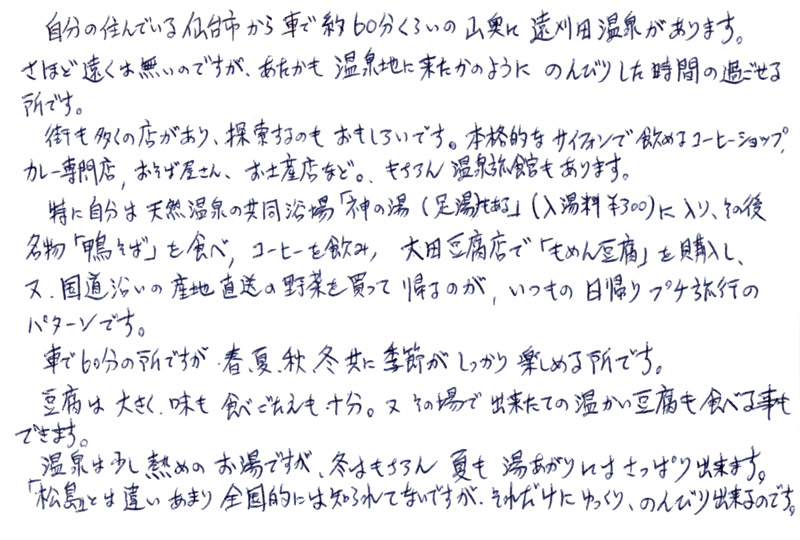 自分の住んでいる仙台市から車で約60分くらいの山奥に遠刈田温泉があります。
さほど遠くは無いのですが、あたかも温泉地に来たかのように のんびりした時間の過ごせる
所です。
街も多くの店があり、探索するのもおもしろいです。本格的なサイフォンで飲めるコーヒーショップ、
カレー専門店、おそば屋さん、お土産店など。、もちろん温泉旅館もあります。
特に自分は天然温泉の共同浴場「神の湯(足湯もある)」(入湯料¥300)に入り、その後
名物「鴨そば」を食べ、コーヒーを飲み、大田豆腐店で「もめん豆腐」を購入し、
又、国道沿いの産地直送の野菜を買って帰るのが、いつもの日帰りプチ旅行の
パターンです。
車で60分の所ですが、春、夏、秋、冬共に季節がしっかり楽しめる所です。
豆腐は大きく、味も食べごたえも十分。又その場で出来たての温かい豆腐も食べる事も
できます。
温泉は少し熱めのお湯ですが、冬はもちろん夏も湯あがりにはさっぱり出来ます。
「松島」とは違いあまり全国的には知られてないですが、それだけにゆっくり、のんびり出来るのです。